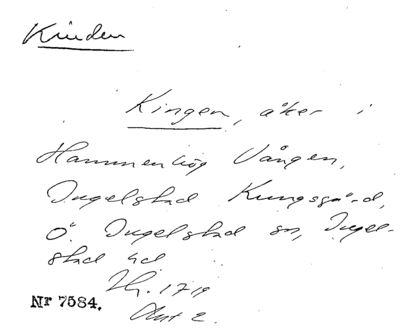 Kinden
Kingen, åker i
Hammenhög Vången,
Ingelstad Kungsgård,
Ö. Ingelstad sn, Ingel-
stad hd
1719
Nr 7584.
Akt 2.